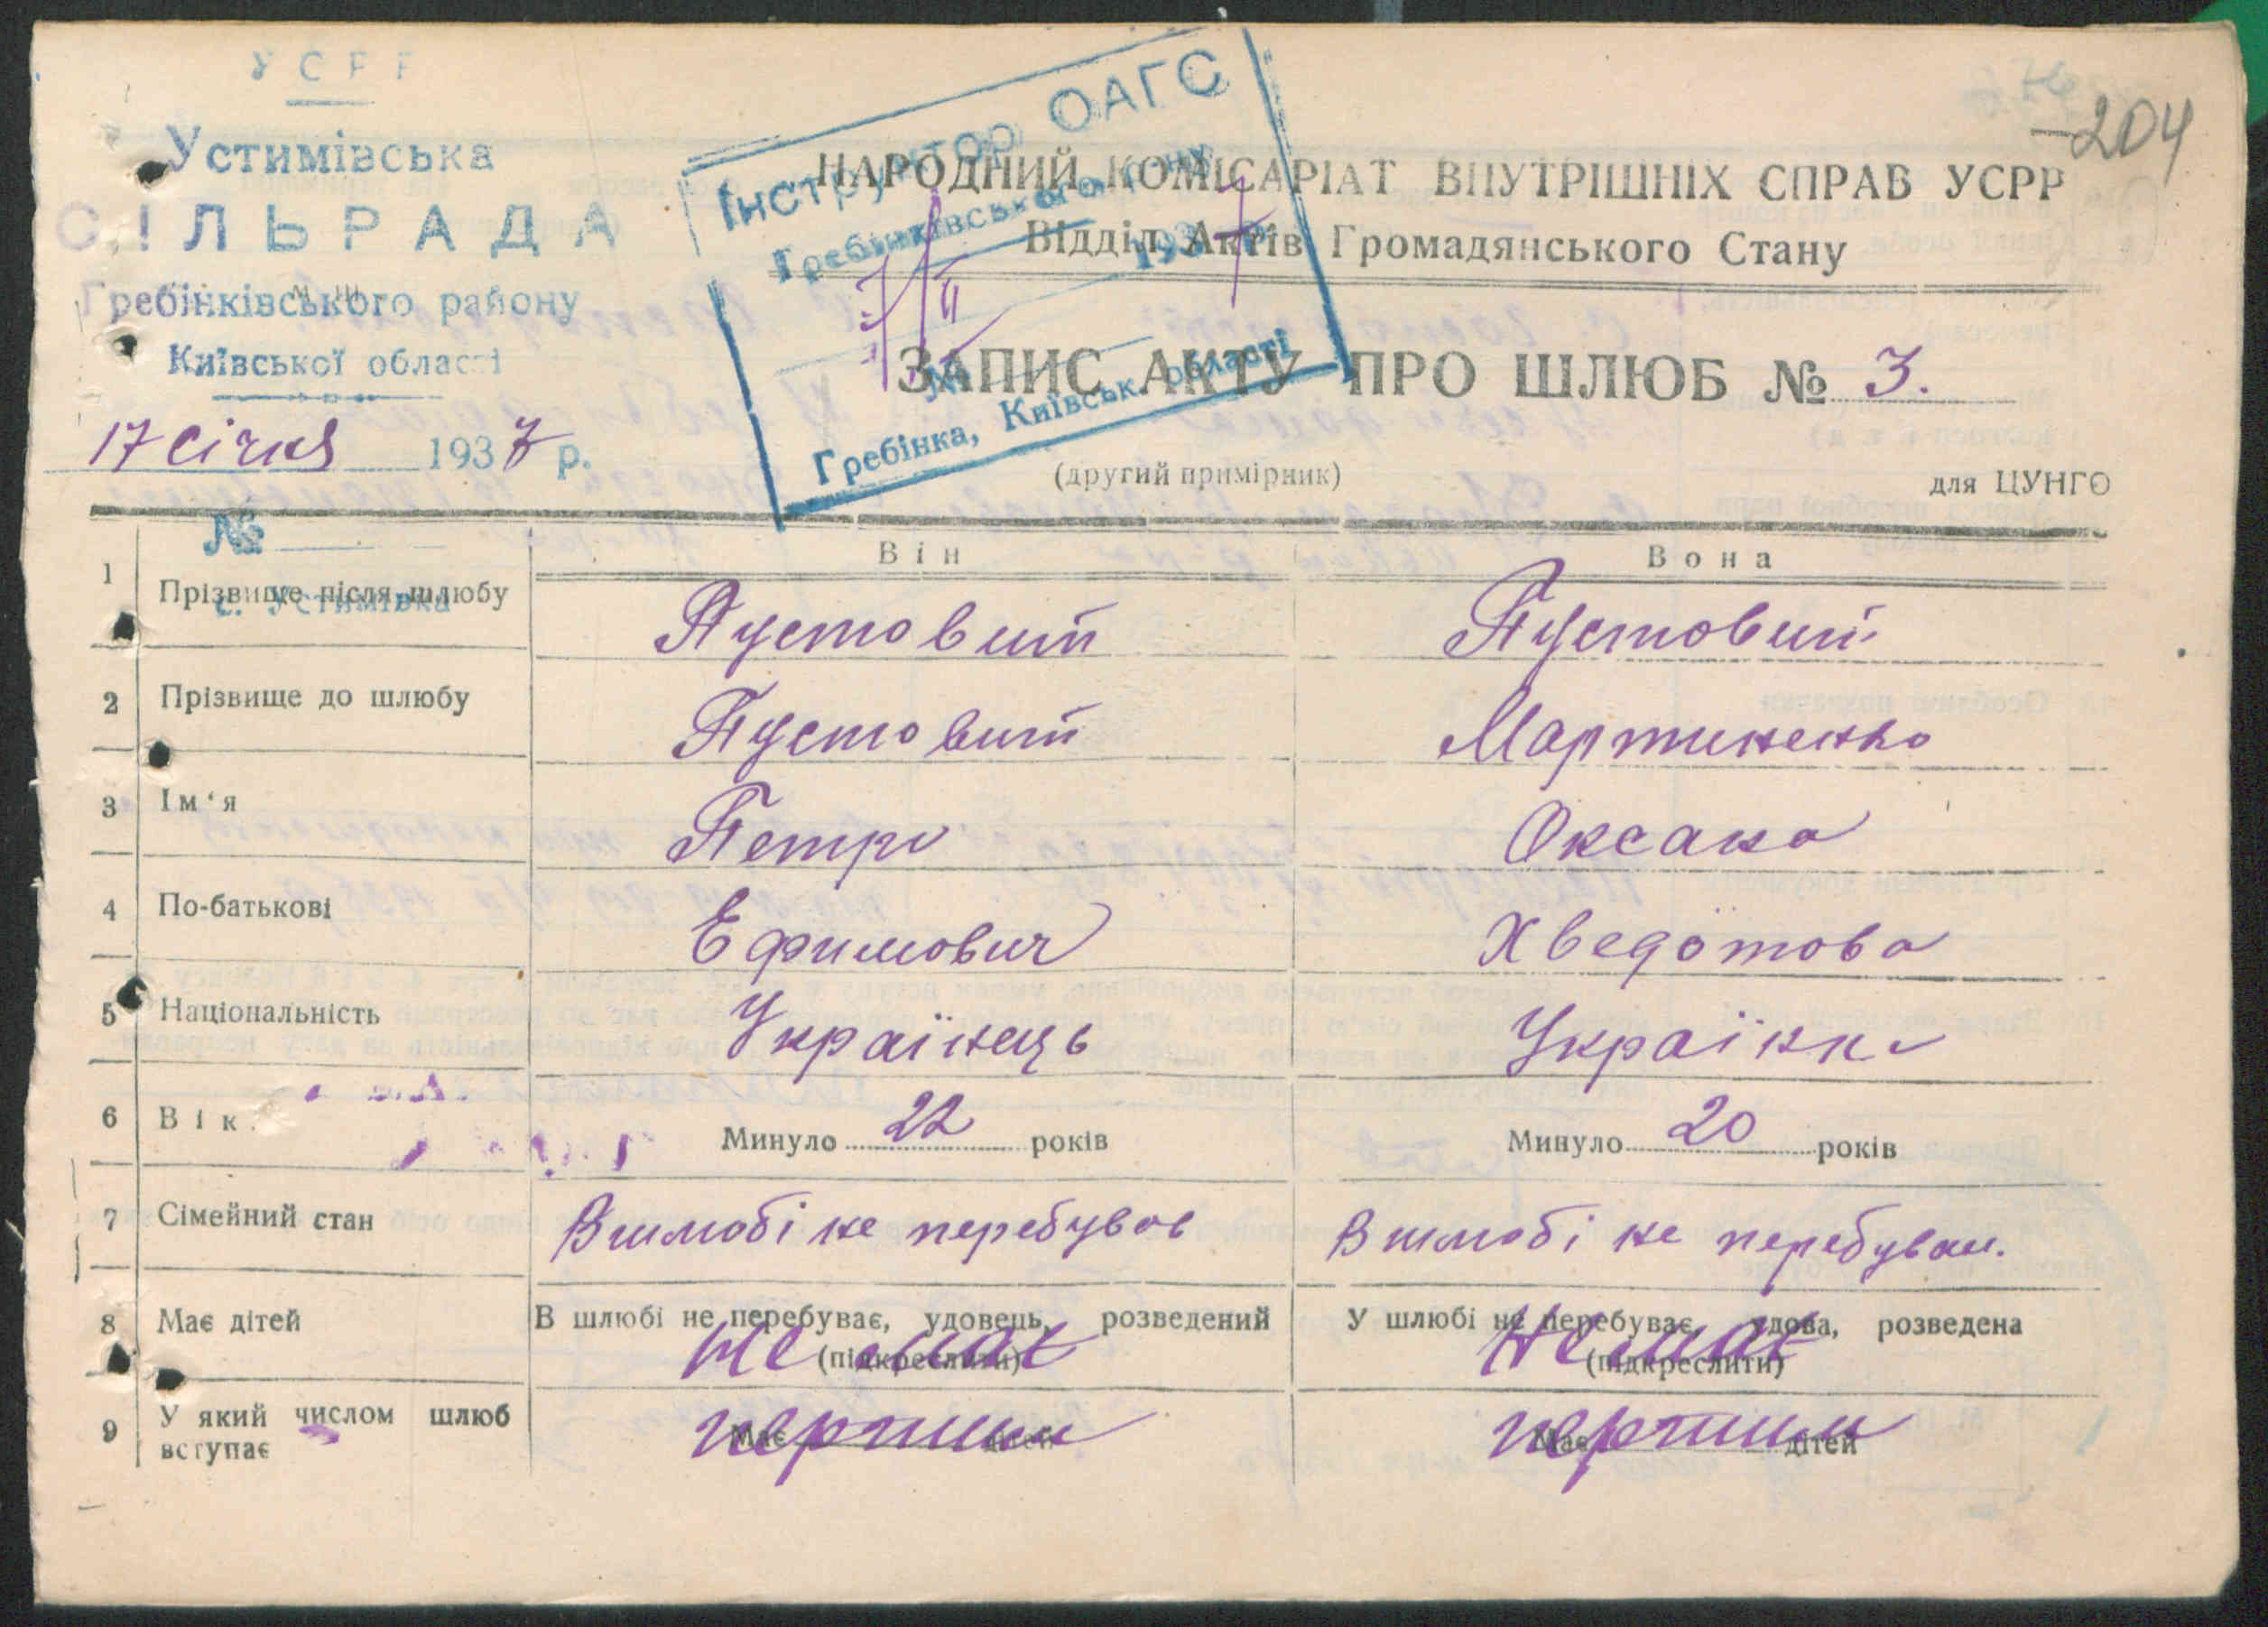 УСРР
Устимівська
СІЛЬРАДА
Гребінківського району
Київської області
17 січня 1937 р.
№
с. Устимівка
Інструктор ОАГС
Гребінківського району
193 7 р.
Гребінка, Київськ. області
204
НАРОДНИЙ КОМІСАРІАТ ВНУТРІШНІХ СПРАВ УСРР
Відділ Актів Громадянського Стану
ЗАПИС АКТУ ПРО ШЛЮБ № 3.
(другий примірник)
для ЦУНГО
Він Вона
1 Прізвище після шлюбу Пустовит Пустовит
2 Прізвище до шлюбу Пустовит Мартиненко
3 Ім‘я Петро Оксана
4 По-батькові Ефимович Хведотова
5 Національність Українець Українка
6 Вік Минуло 22 років Минуло 20 років
7 Сімейний стан В шлюбі не перебував В шлюбі не перебувал.
8 Має дітей В шлюбі не перебуває, удовець, розведений У шлюбі не перебуває, удова, розведена
(підкреслити) (підкреслити)
не має не має
9 У який числом шлюб вступає Має дітей Має дітей
першим першим